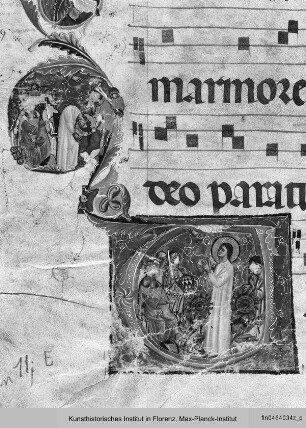 marmore
deo paratu
E
Kunsthistorisches Institut in Florenz, Max-Planck-Institut